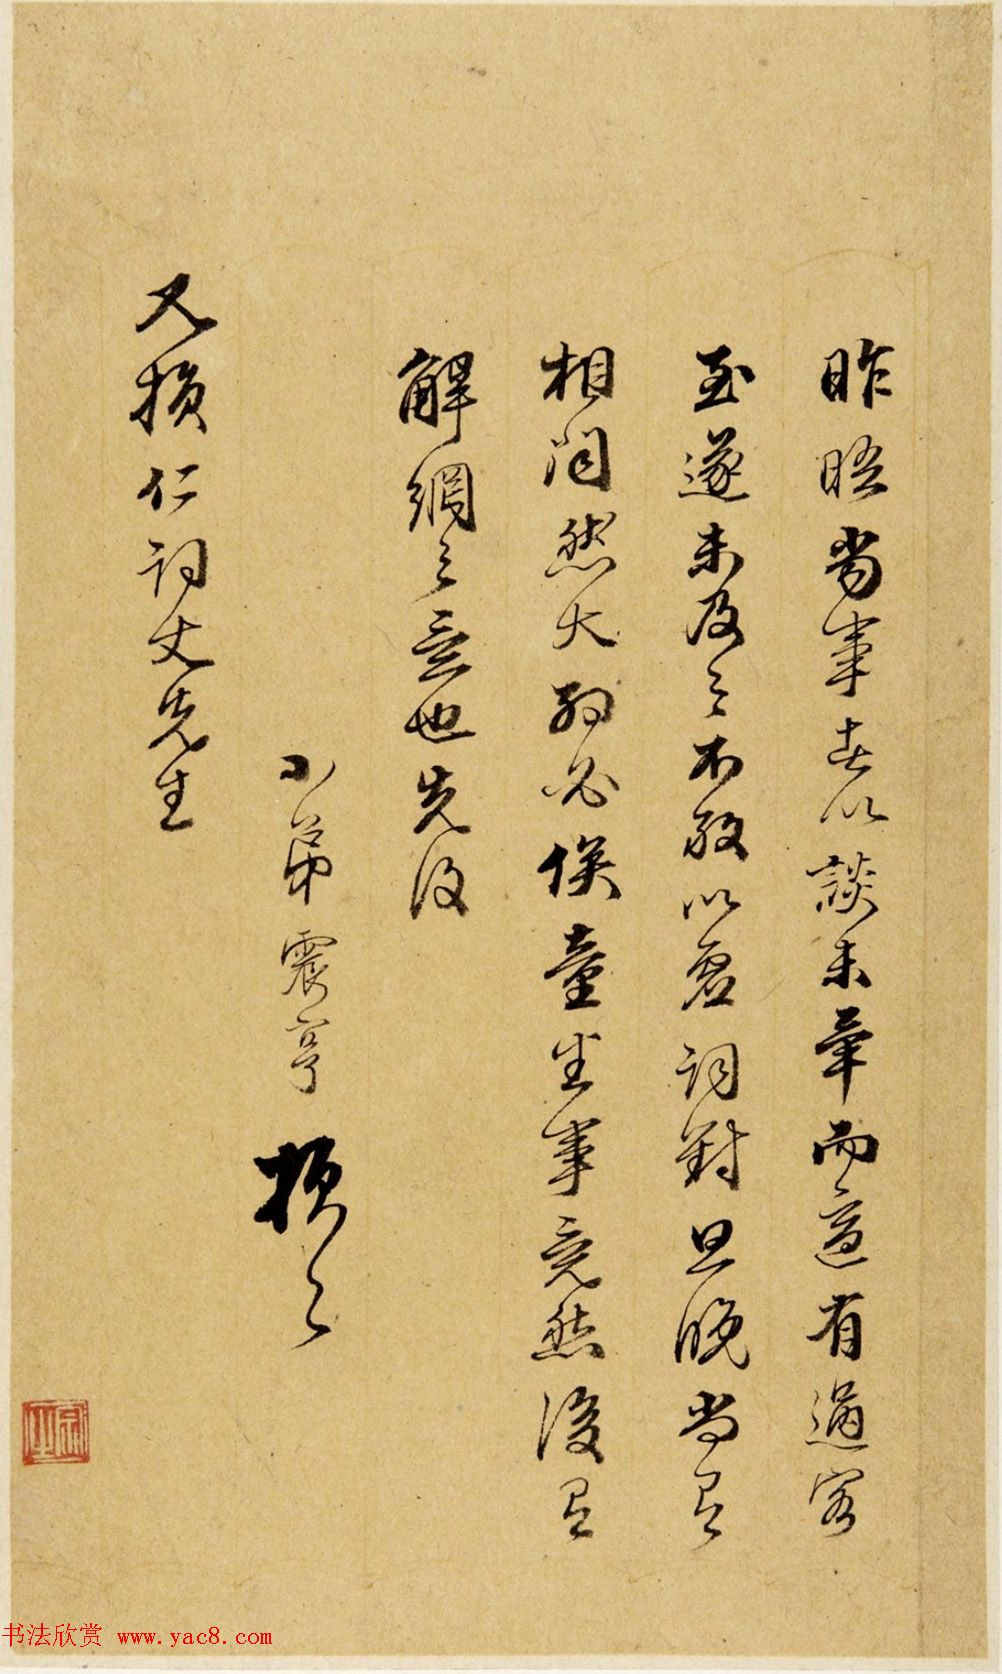 昨晤當事甚以談未畢而適有過客
至遂未及之不敢以君詞對旦晚當有
相聞然大約必俟童生事竟然後有
解網之意也先復
小弟震亨頓首
又損仁詞丈先生
书法欣赏 www.yac8.com